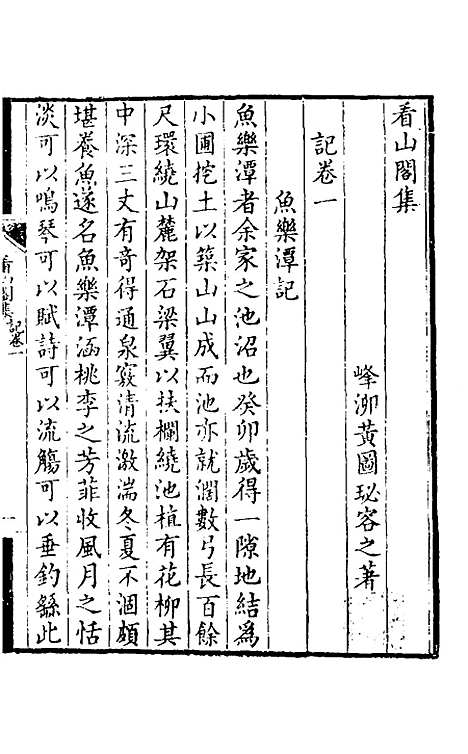 看山閣集
峰泖黃圖珌容之著
記卷一
魚樂潭記
魚樂潭者余家之池沼也癸卯歲得一隙地結爲
小圃挖土以築山山成而池亦就濶數弓長百餘
尺環繞山麓架石梁翼以扶欄繞池植有花柳其
中深三丈有奇得通泉竅清流激湍冬夏不涸頗
堪養魚遂名魚樂潭涵桃李之芳菲收風月之恬
淡可以鳴琴可以賦詩可以流觴可以垂釣繇此
看山閣集 記卷一 一